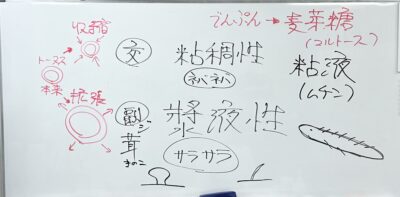 でんぷん→麦芽糖
(マルトース)
収縮
トーヌス
本来
拡張
交
粘稠性
ネバネバ
粘液
(ムチン)
副
漿液性
サラサラ
茸
きのこ